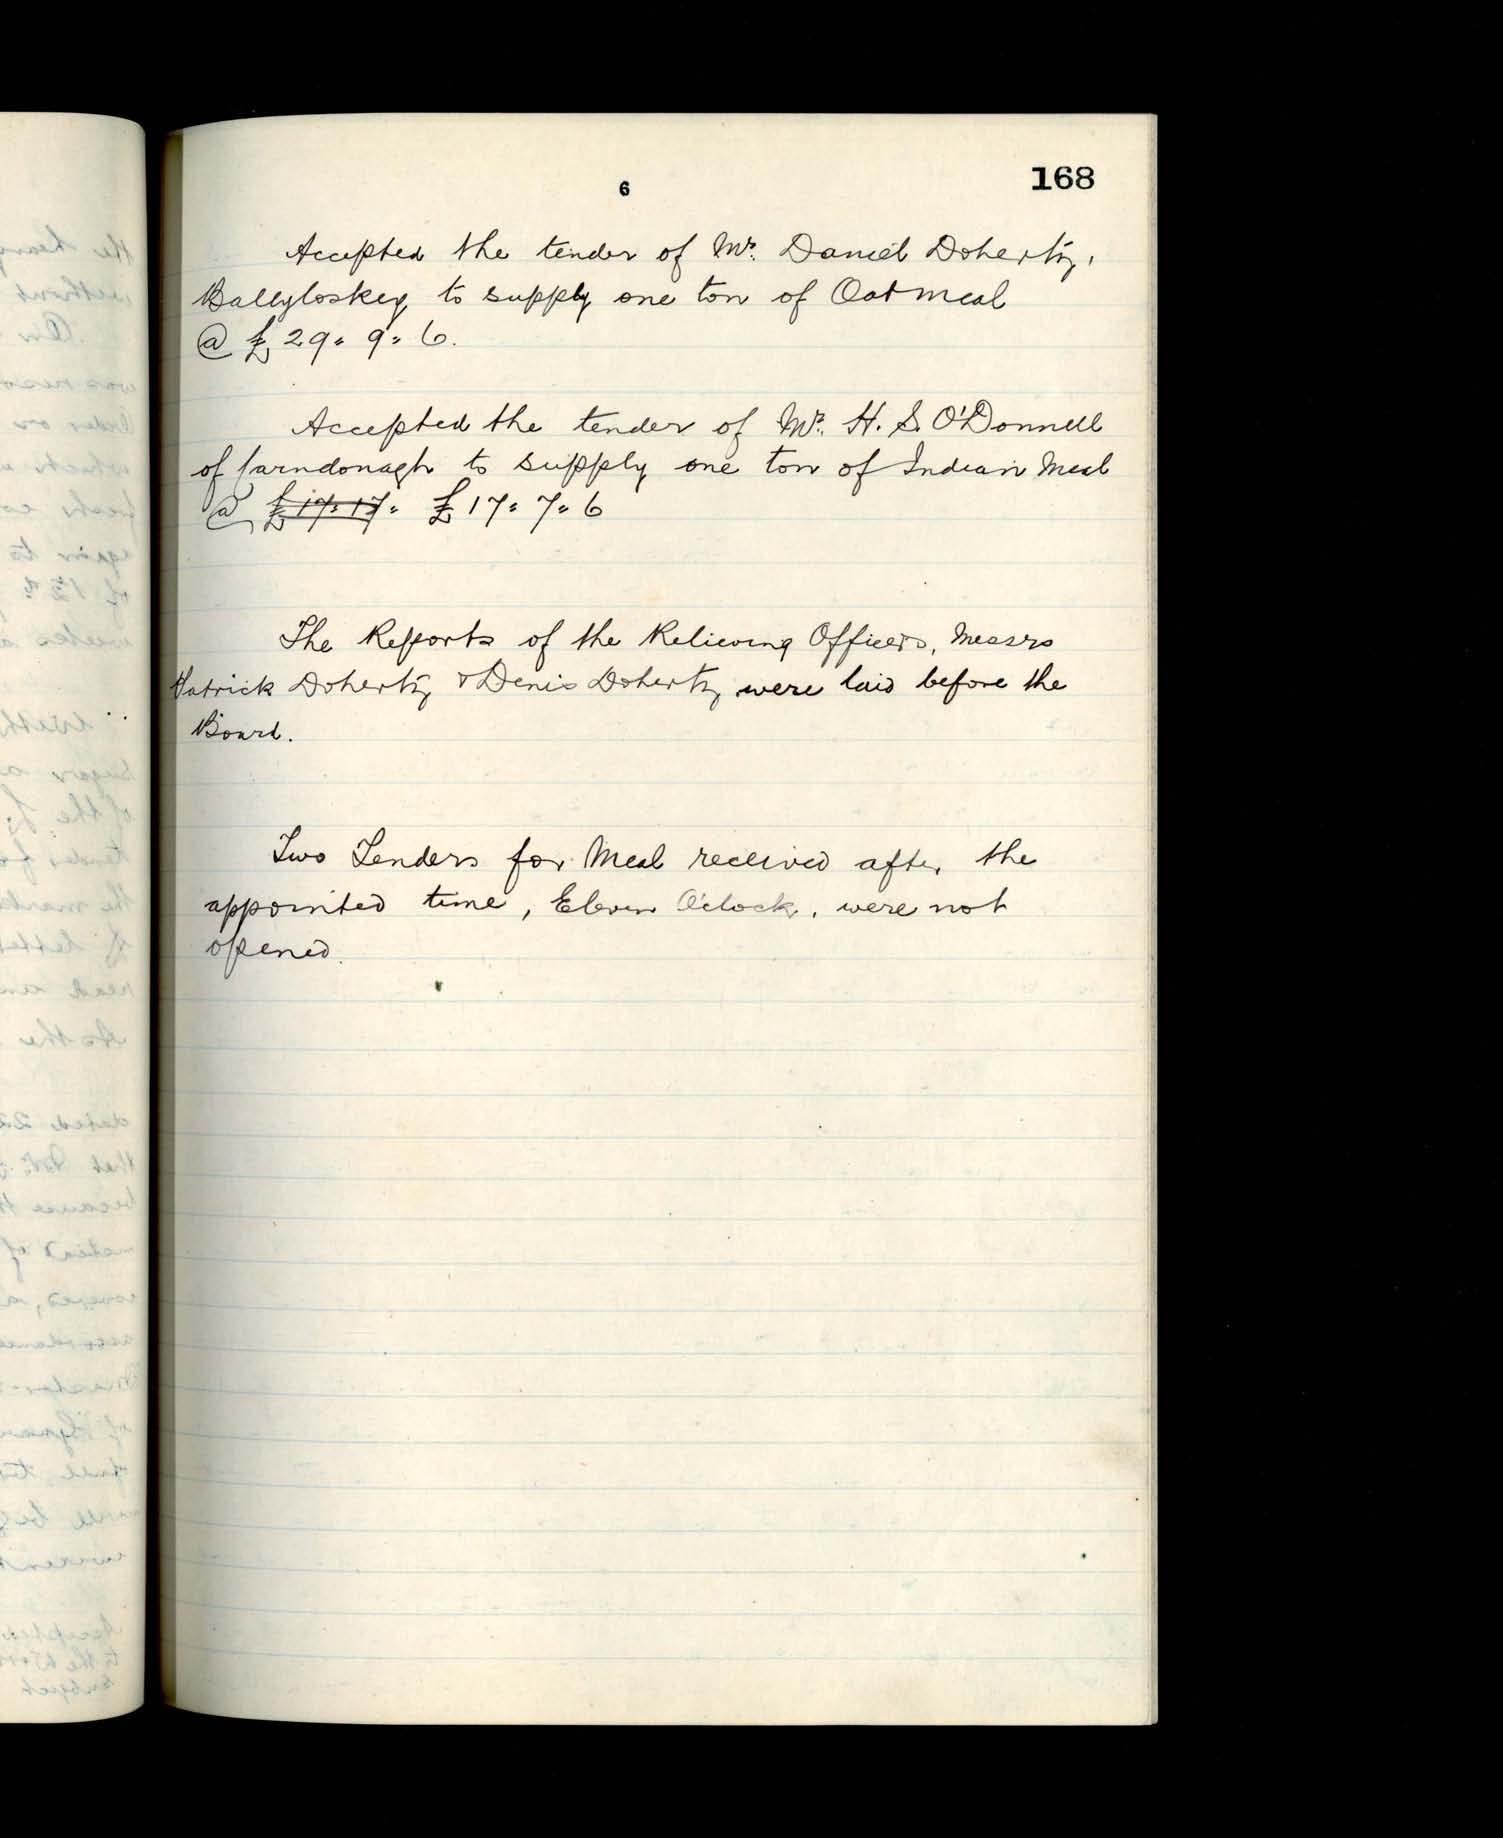 6
168
Accepted the tender of Mr. Daniel Doherty,
Ballyloskey to supply one ton of Oatmeal
@ £29" 9" 6.
Accepted the tender of Mr. H. S. O'Donnell
of Carndonagh to supply one ton of Indian Meal
@ £17" 17" £17" 7" 6
The Reports of the Relieving Officers, Messrs
Patrick Doherty & Denis Doherty were laid before the
Board.
Two Tenders for Meal received after the
appointed time, Eleven O'clock, were not
opened.